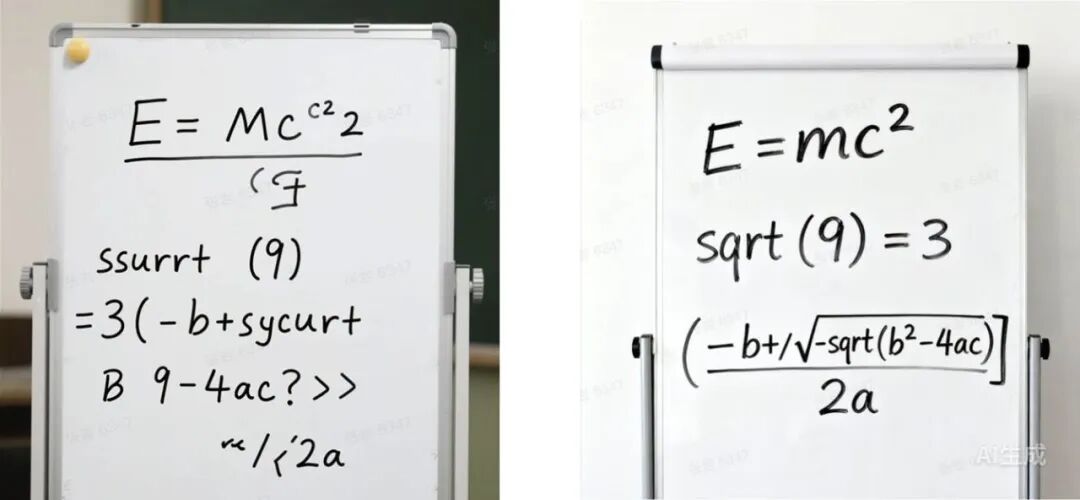 E = Mc^c2 2
ssurrt (9)
=3(-b+sycurt
B 9-4ac?>>
/ 2a
E = mc²
sqrt (9) = 3
(-b+/√-sqrt(b²-4ac)]
2a
AI生成